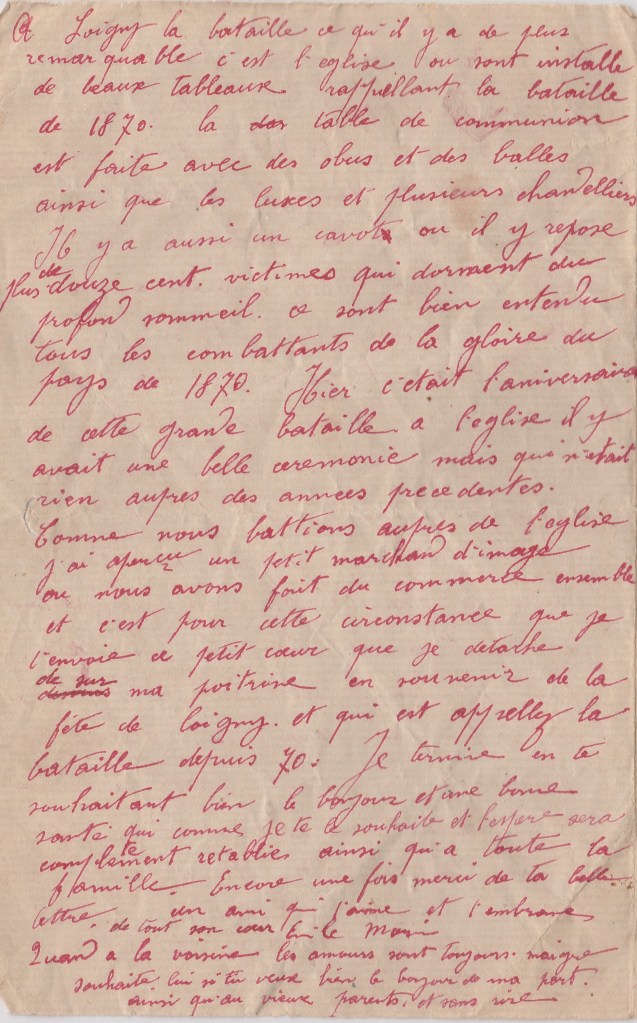 a Loigny la bataille ce qu'il y a de plus
remarquable c'est l'eglise ou sont installe
de beaux tableaux rappellant la bataille
de 1870. la table de communion
est faite avec des obus et des balles
ainsi que les luxes et plusieurs chandelliers
Il y a aussi un cavot ou il y repose
plus de douze cent. victimes qui dorment du
profond sommeil. ce sont bien entendu
tous les combattants de la gloire du
pays de 1870. Hier c'était l'aniversaire
de cette grande bataille a l'eglise il y
avait une belle ceremonie mais qui n'etait
rien aupres des annees precedentes.
Comme nous battions aupres de l'eglise
j'ai aperçu un petit marchand d'image
ou nous avons fait du commerce ensemble
et c'est pour cette circonstance que je
t'envoie ce petit cœur que je detache
de sur ma poitrine en souvenir de la
fête de Loigny. et qui est appelley la
bataille depuis 70. Je termine en te
souhaitant bien le bonjour et une bonne
santé qui comme je te le souhaite et l'espere sera
completement retablies ainsi qu'a toute la
famille. Encore une fois merci de ta belle
lettre. un ami qui t'aime et t'embrasse
de tout son cœur Emile
Quand a la voisine les amours sont toujours. maigre
souhaite lui si tu veux bien le bonjour de ma part.
ainsi qu'au vieux parents. et sans rire